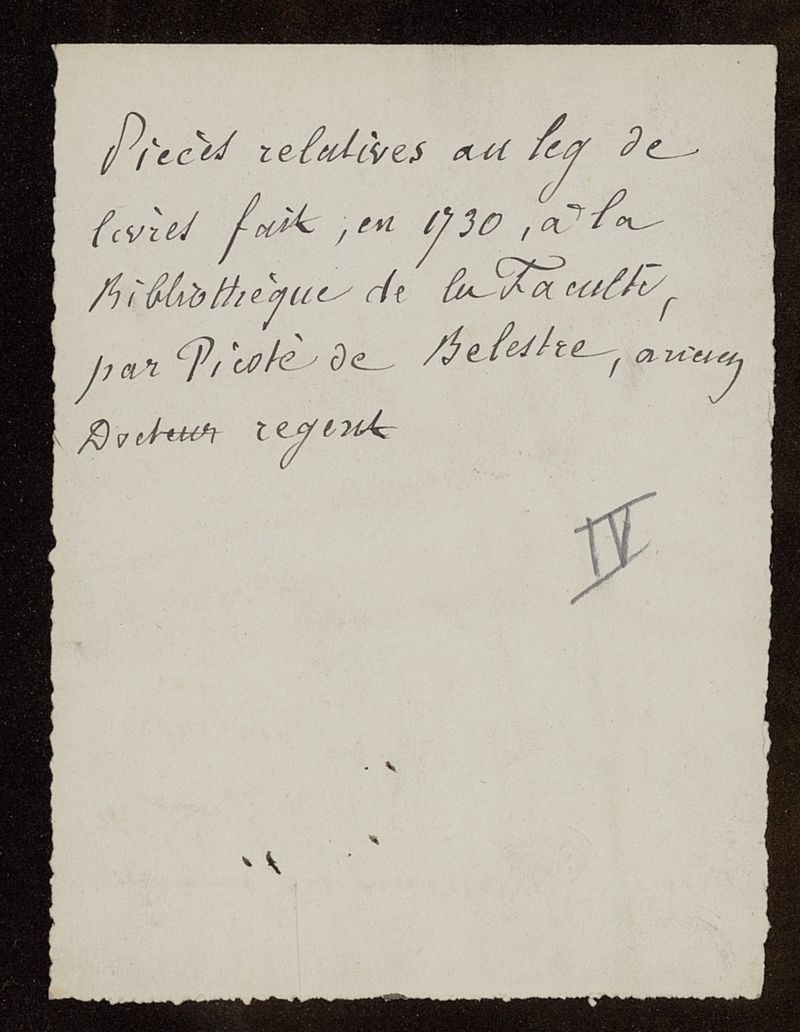 Pièces relatives au leg de
livres fait, en 1730, à la
Bibliothèque de la Faculté,
par Picoté de Belestre, ancien
Docteur regent
IV